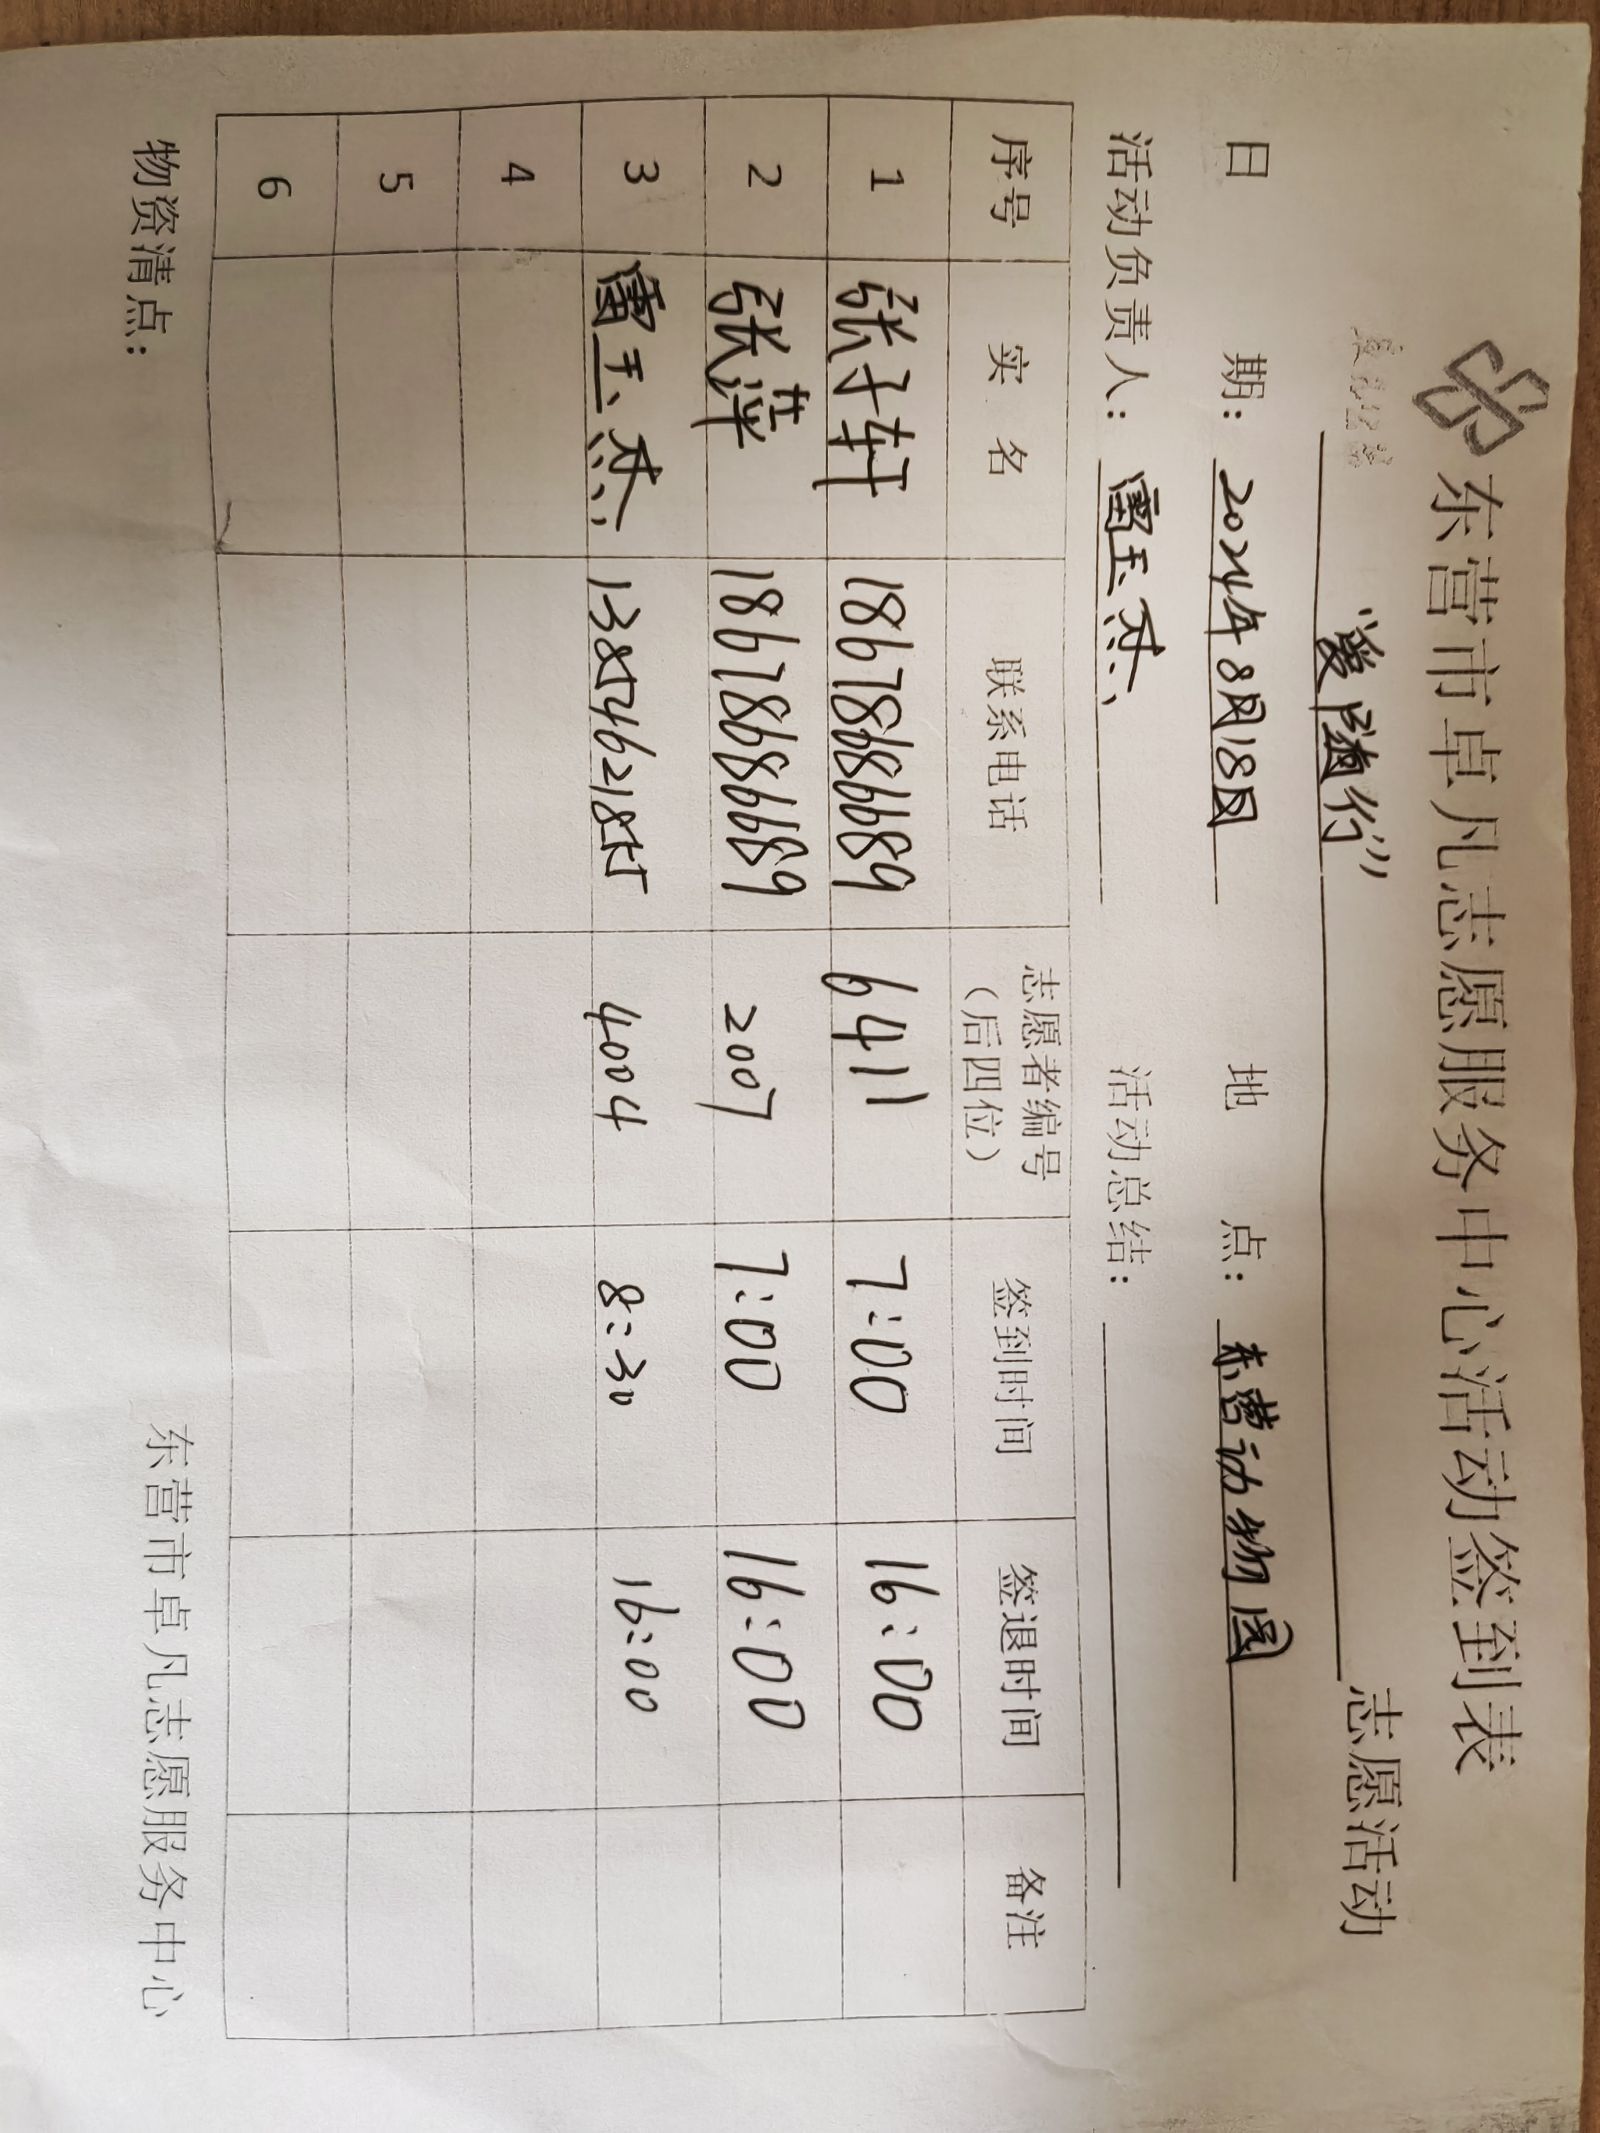 东营市卓凡志愿服务中心活动签到表
“爱随行” 志愿活动
日 期：2024年8月18日 地 点：东营动物园
活动负责人：雷玉杰 活动总结：
序号 实 名 联系电话 志愿者编号（后四位） 签到时间 签退时间 备注
1 张子轩 18678686689 6411 7:00 16:00
2 张萍 18678686689 2007 7:00 16:00
3 雷玉杰 13854621855 4004 8:30 16:00
4
5
6
物资清点： 东营市卓凡志愿服务中心